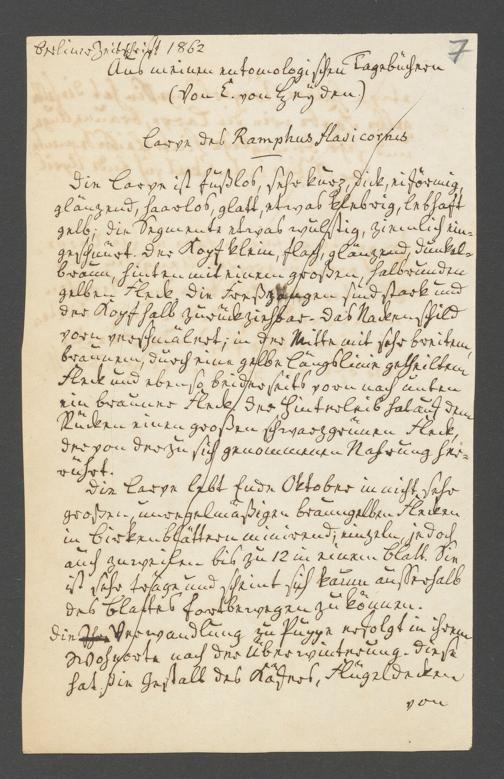 Berliner Zeitschrift 1862
7
Aus meinen entomologischen Tagebüchern
(von C. von Heyden)
Larve des Ramphus flavicornis
Die Larve ist fußlos, sehr kurz, dick, eiförmig,
glänzend, haarlos, glatt, etwas klebrig, lebhaft
gelb; die Segmente etwas wulstig, ziemlich ein-
geschnürt. Der Kopf klein, flach, glänzend, dunkel-
braun, hinten mit einem großen, halbrunden
gelben Fleck. Die Freßzangen sind stark und
der Kopf halb zurückziehbar. Das Nackenschild
vorn verschmälert; in der Mitte mit sehr breitem,
braunem, durch eine gelbe Längslinie getheiltem
Fleck und ebenso beiderseits vorn nach unten
ein brauner Fleck. Der Hinterleib hat auf dem
Rücken einen großen schwarzgrünen Fleck,
der von der zu sich genommenen Nahrung her-
rührt.
Die Larve lebt Ende Oktober in nicht sehr
großen, unregelmäßigen braungelben Flecken
in Birkenblättern minirend; einzeln, jedoch
auch zuweilen bis zu 12 in einem Blatt. Sie
ist sehr träge und scheint sich kaum ausserhalb
des Blattes fortbewegen zu können.
Die Verwandlung zu Puppe erfolgt in ihrem
Wohnorte nach der Überwinterung. Diese
hat die Gestalt des Käfers, Flügeldecken
von